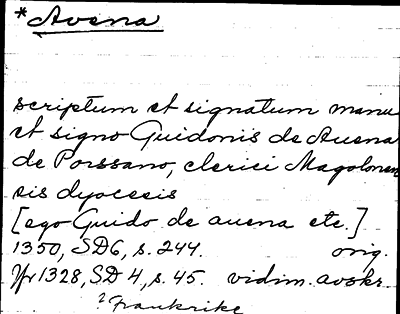 *Avena
scriptum et signatum manu
et signo Guidonis de Auena
de Porssano, clerici Magolonen
sis dyocesis
[ego Guido de auena etc.]
1350, SD6, s. 244. orig.
1328, SD 4, s. 45. vidim. avskr.
? Frankrike